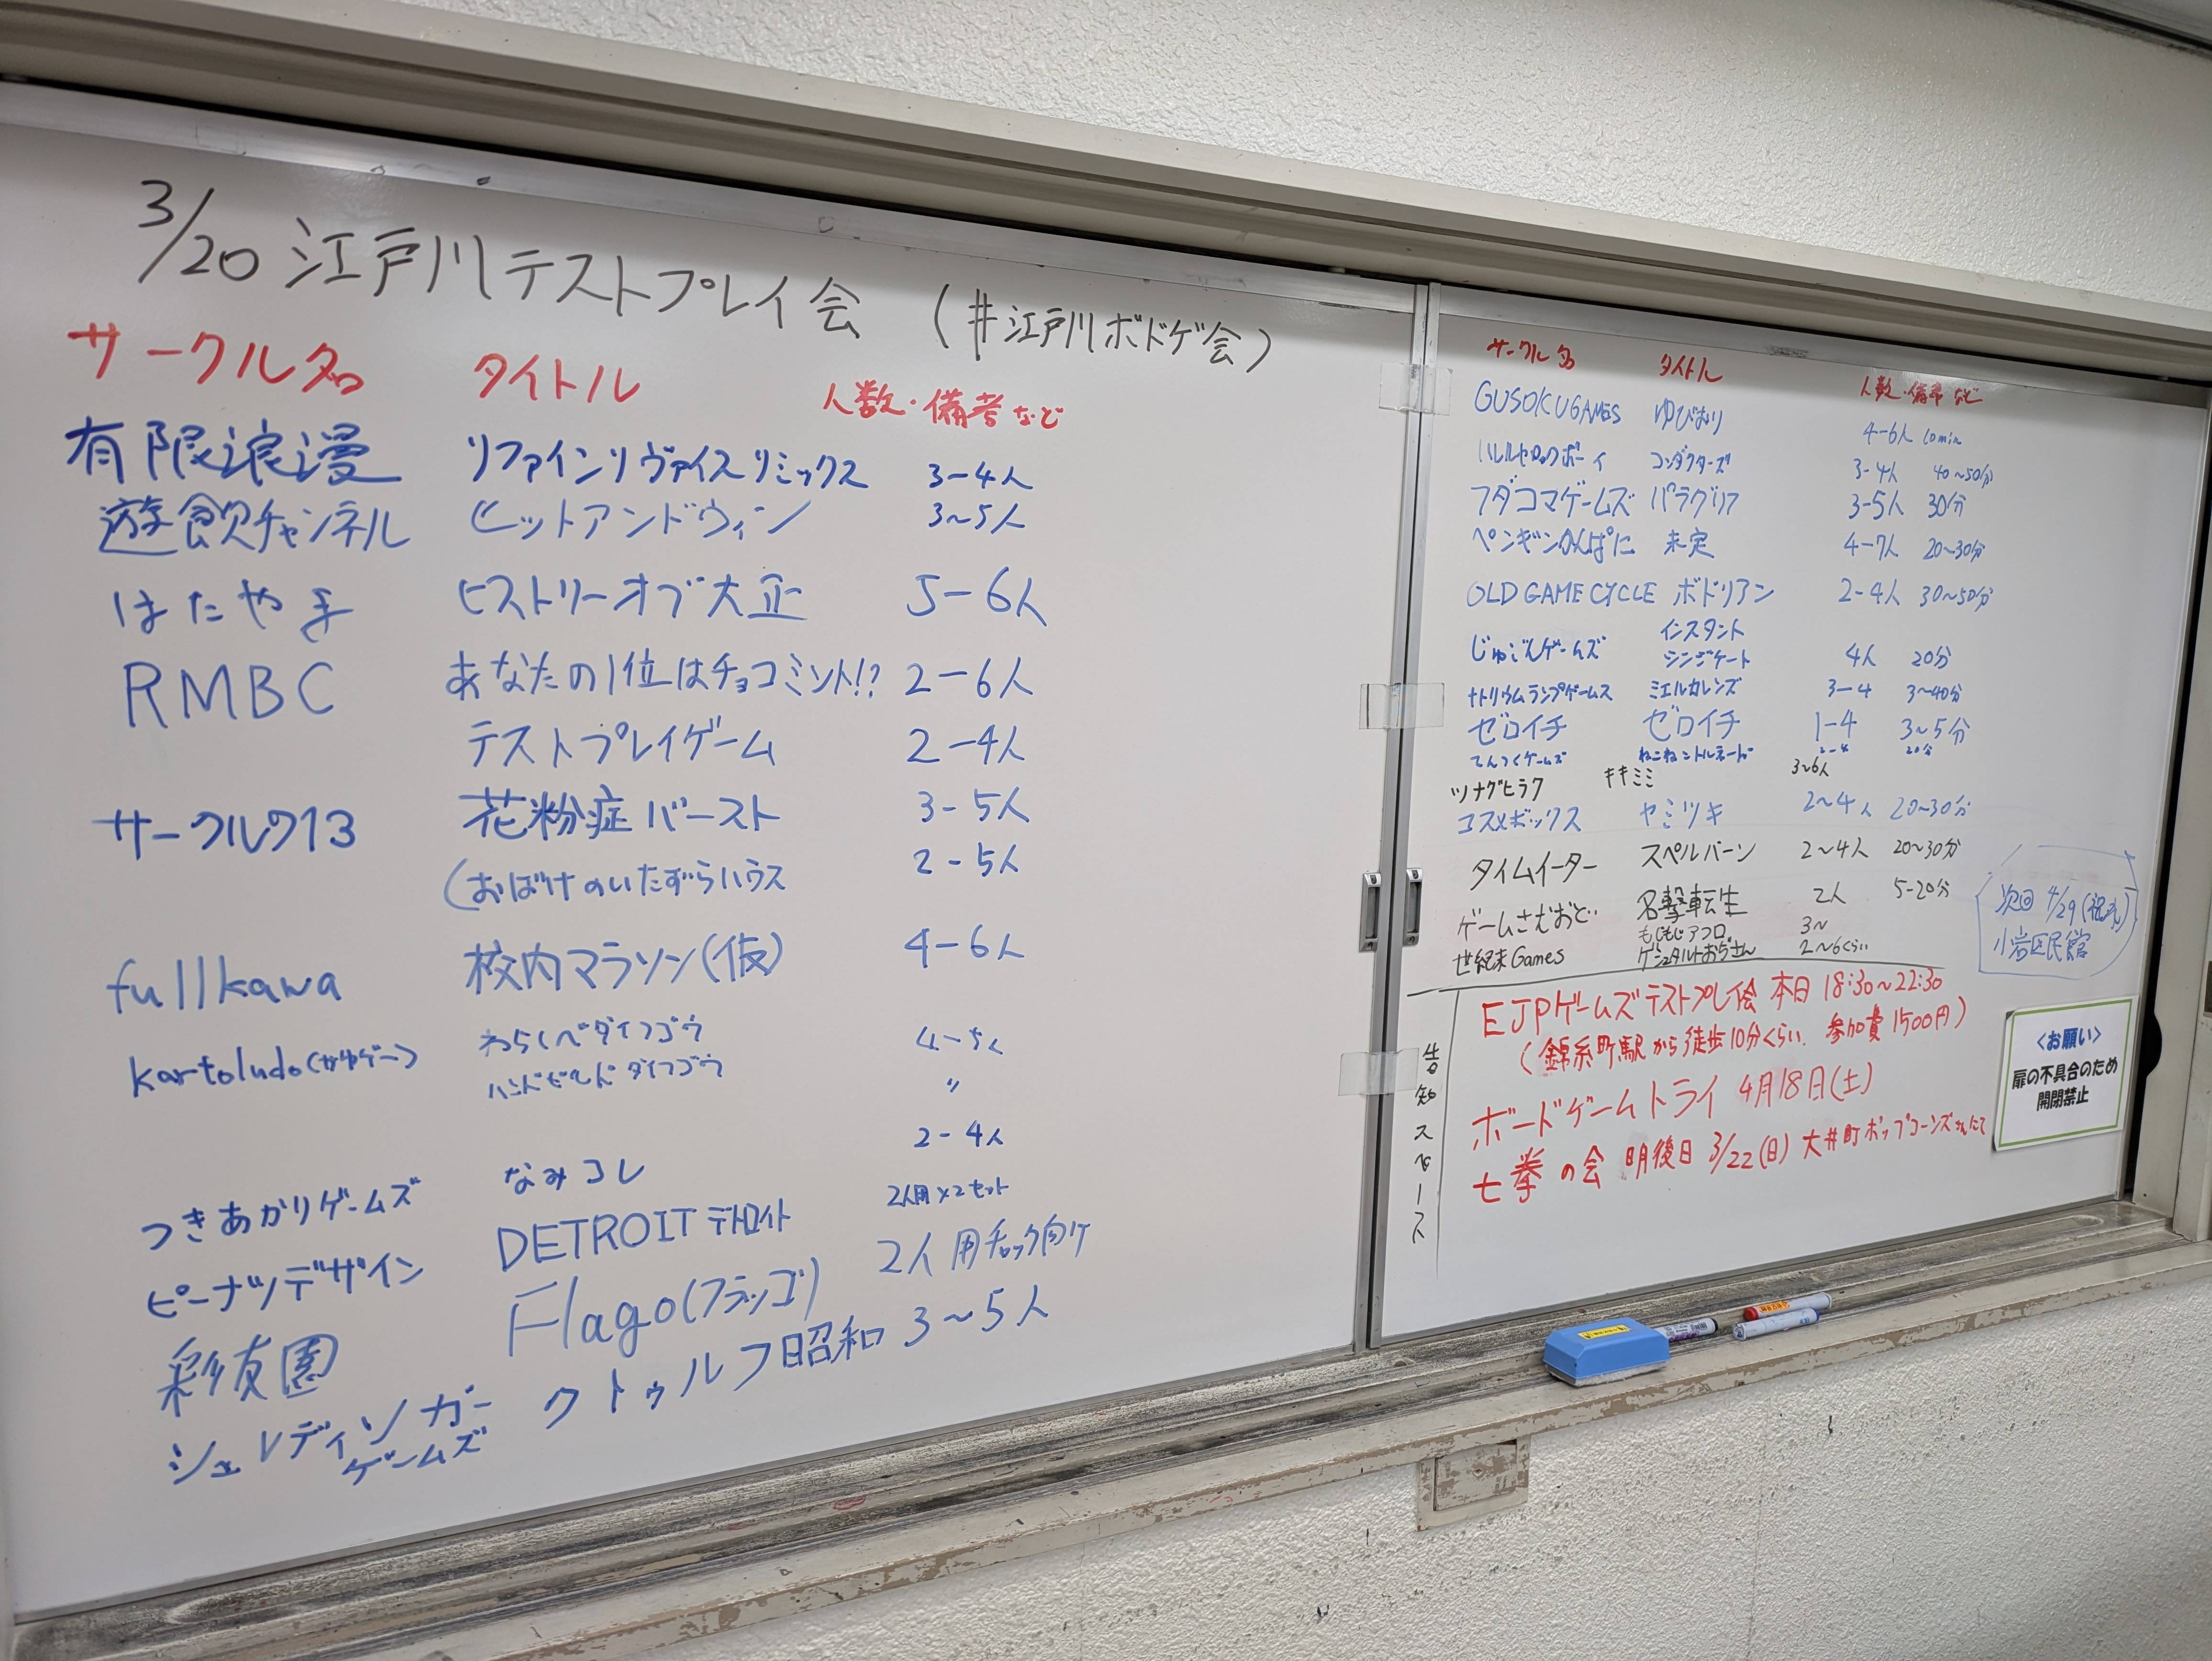 3/20 江戸川テストプレイ会 (#江戸川ボドゲ会)
サークル名 タイトル 人数・備考など
有限浪漫 リファインリヴァイスリミックス 3-4人
遊飲チャンネル ヒットアンドウィン 3~5人
はたやま ヒストリーオブ大正 5-6人
RMBC あなたの1位はチョコミント!? 2-6人
テストプレイゲーム 2-4人
サークルク13 花粉症バースト 3-5人
(おばけのいたずらハウス 2-5人
fullkawa 校内マラソン(仮) 4-6人
kartoludo ダイフゴウ
ハンドビルド ダイフゴウ 〃
2-4人
つきあかりゲームズ なみコレ 2人用×2セット
ピーナツデザイン DETROIT デトロイト
彩友園 Flago(フラッゴ) 2人用
シュレディンガーゲームズ クトゥルフ昭和 3~5人
サークル名 タイトル 人数・備考など
GUSOKUGAMES ゆびおり 4-6人 10min
コンダクターズ 3-4人 40~50分
フダコマゲームズ パラグリフ 3-5人 30分
ペンギンかんぱに 未定 4-7人 20~30分
OLD GAME CYCLE ボドリアン 2-4人 30~50分
じゅごんゲームズ インスタント
シンジケート 4人 20分
ナトリウムランプゲームス ミエルカレンズ 3-4 3~40分
ゼロイチ ゼロイチ 1-4 3~5分
てんつくゲームズ 2-4 20分
ツナグヒラク キキミミ 3~6人
コスメボックス ヤミツキ 2~4人 20~30分
タイムイーター スペルバーン 2~4人 20~30分
ゲームさむおど 名撃転生 2人 5-20分
もじもじアフロ 3~
世紀末Games ゲシュタルトおぢさん 2~6くらい
次回 4/29
小岩区民館
告知スペース
EJPゲームズテストプレイ会 本日 18:30~22:30
(錦糸町駅から徒歩10分くらい、参加費1500円)
ボードゲームトライ 4月18日(土)
七拳の会 明後日 3/22(日) 大井町ポップコーンズさんにて
<お願い>
扉の不具合のため
開閉禁止